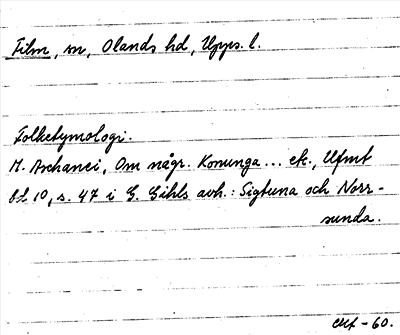 Film, m, Olands hd, Upps. l.
Folketymologi.
M. Aschanei, Om någr. Konunga... etc., Ufmt
bd 10, s. 47 i G. Gihls avh.: Sigtuna och Norr-
sunda.
-60.